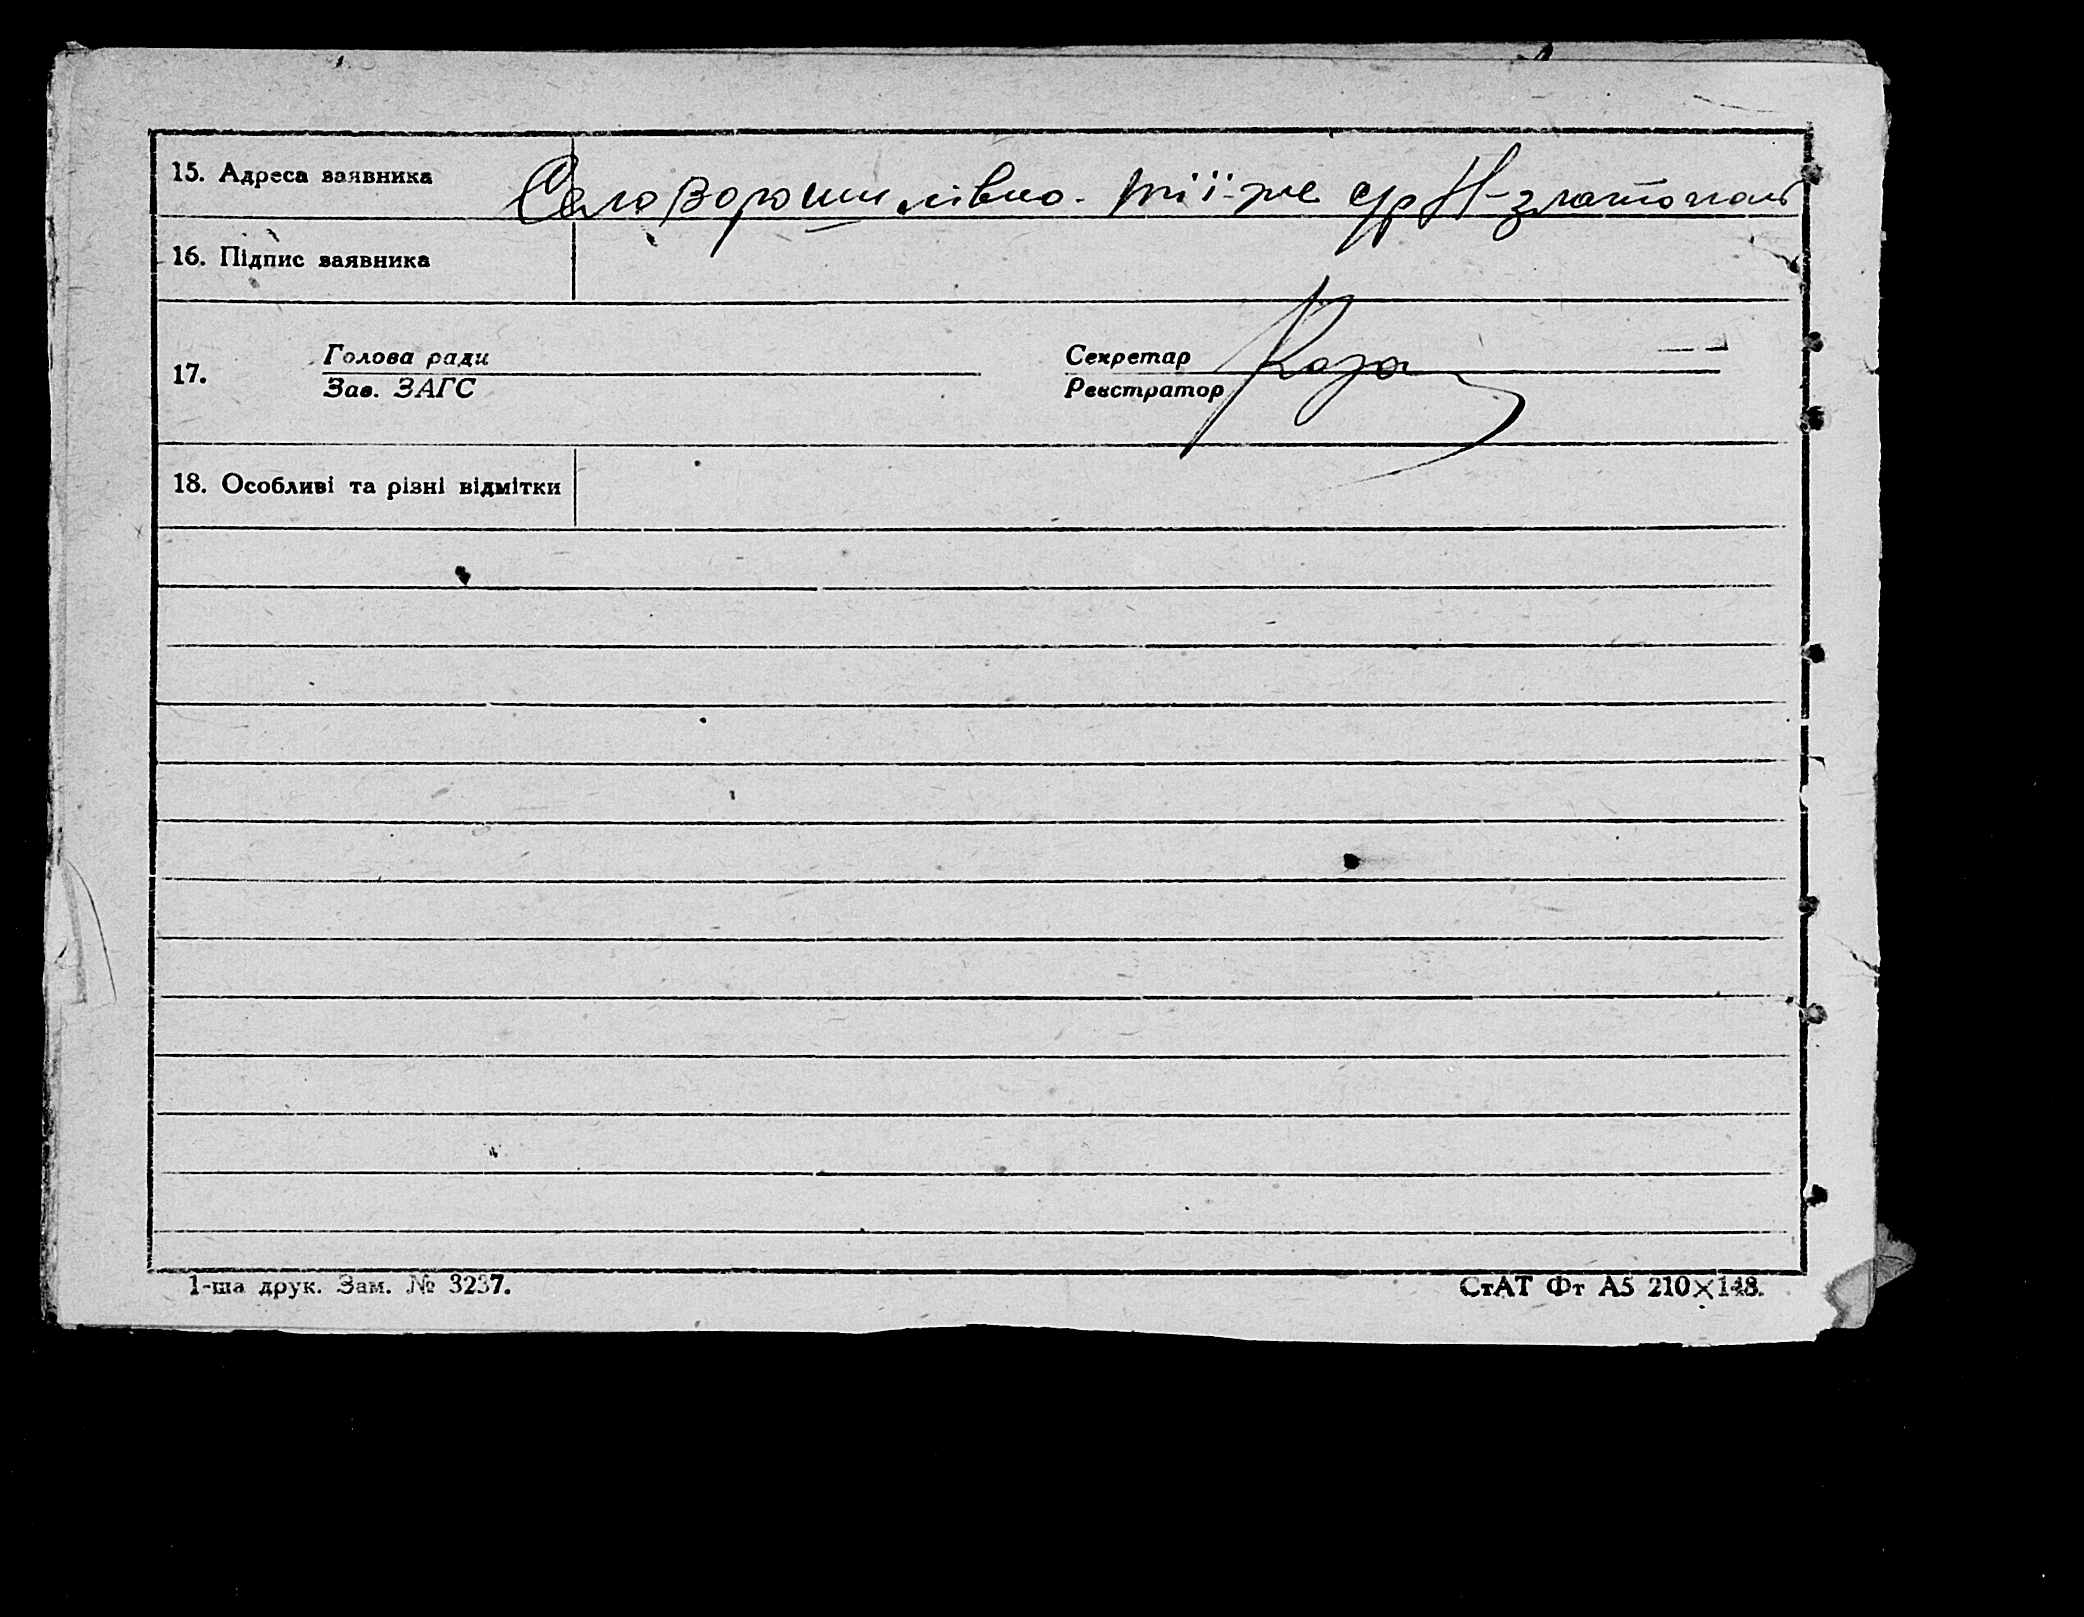 15. Адреса заявника Село Ворошилівка. тії-же с/р Н-златополь
16. Підпис заявника
17. Голова ради Секретар
Зав. ЗАГС Реєстратор
18. Особливі та різні відмітки
1-ша друк. Зам. № 3237. СтАТ Фт А5 210×148.